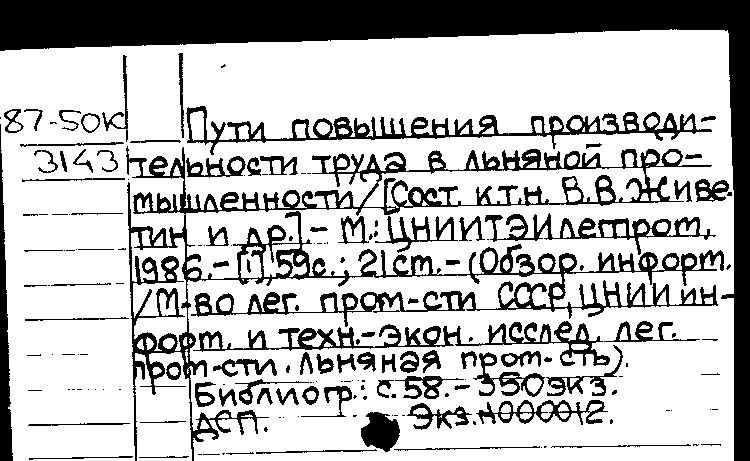 87-50К Пути повышения производи-
3143 тельности труда в льняной про-
мышленности/[Сост. к.т.н. В.В.Живе-
тин и др.].- М.: ЦНИИТЭИлегпром,
1986.-[1],59с.; 21см.-(Обзор. информ.
/М-во лег. пром-сти СССР, ЦНИИ ин-
форм. и техн.-экон. исслед. лег.
пром-сти. Льняная пром-сть).
Библиогр.: с.58.-350экз.
ДСП. Экз.№000012.